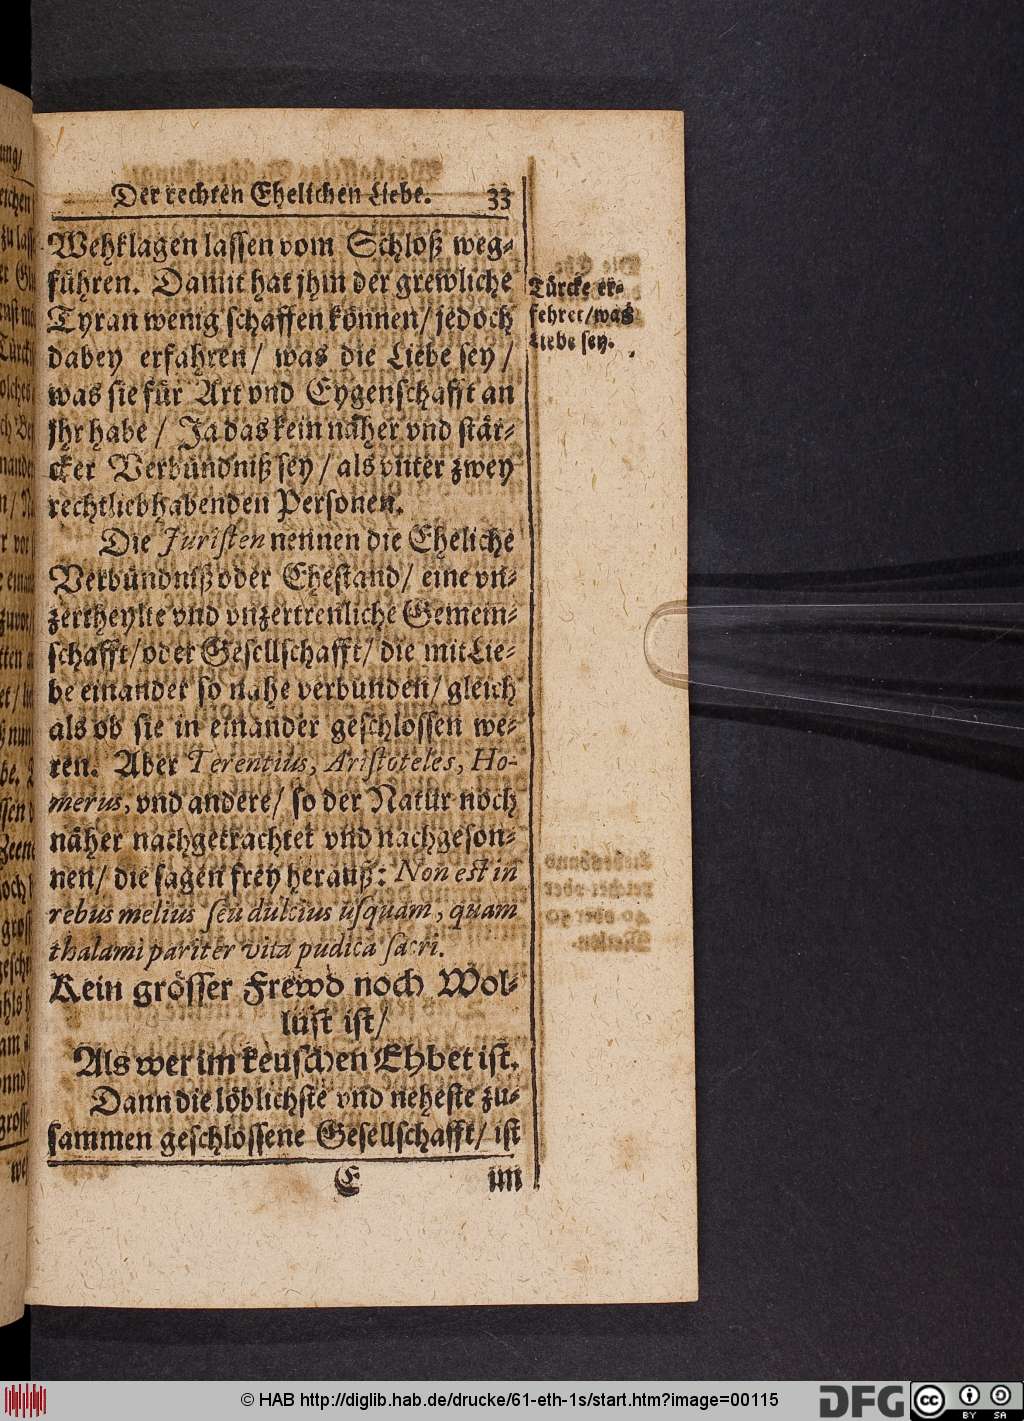 Der rechten Ehelichen Liebe. 33
Wehklagen lassen vom Schloß weg-
führen. Damit hat jhm der grewliche
Tyran wenig schaffen können/ jedoch
dabey erfahren/ was die Liebe sey/
was sie für Art vnd Eygenschafft an
jhr habe/ Ja das kein näher vnd stär-
cker Verbündniß sey/ als vnter zwey
rechtliebhabenden Personen.
Türcke er-
fehret/was
Liebe sey.
Die Juristen nennen die Eheliche
Verbündniß oder Ehestand/ eine vn-
zertheylte vnd vnzertrenliche Gemein-
schafft/oder Gesellschafft/ die mit Lie-
be einander so nahe verbunden/ gleich
als ob sie in einander geschlossen we-
ren. Aber Terentius, Aristoteles, Ho-
merus, vnd andere/ so der Natur noch
näher nachgetrachtet vnd nachgeson-
nen/ die sagen frey herauß: Non est in
rebus melius seu dulcius usquam, quam
thalami pariter vita pudica sacri.
Kein grösser Frewd noch Wol-
lust ist/
Als wer im keuschen Ehbet ist.
Dann die löblichste vnd neheste zu-
sammen geschlossene Gesellschafft/ ist
E im
© HAB http://diglib.hab.de/drucke/61-eth-1s/start.htm?image=00115
DFG
cc
BY SA